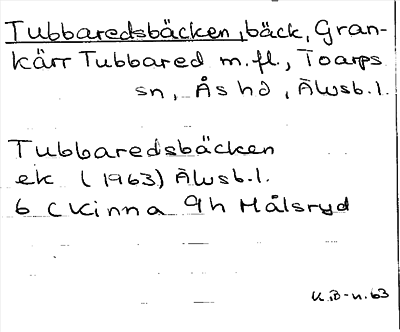 Tubbaredsbäcken, bäck, Gran-
kärr Tubbared m.fl., Toarps
sn, Ås hd, Älvsb.l.
Tubbaredsbäcken
ek (1963) Älvsb.l.
6 C Kinna 9h Målsryd
K.B-n.63